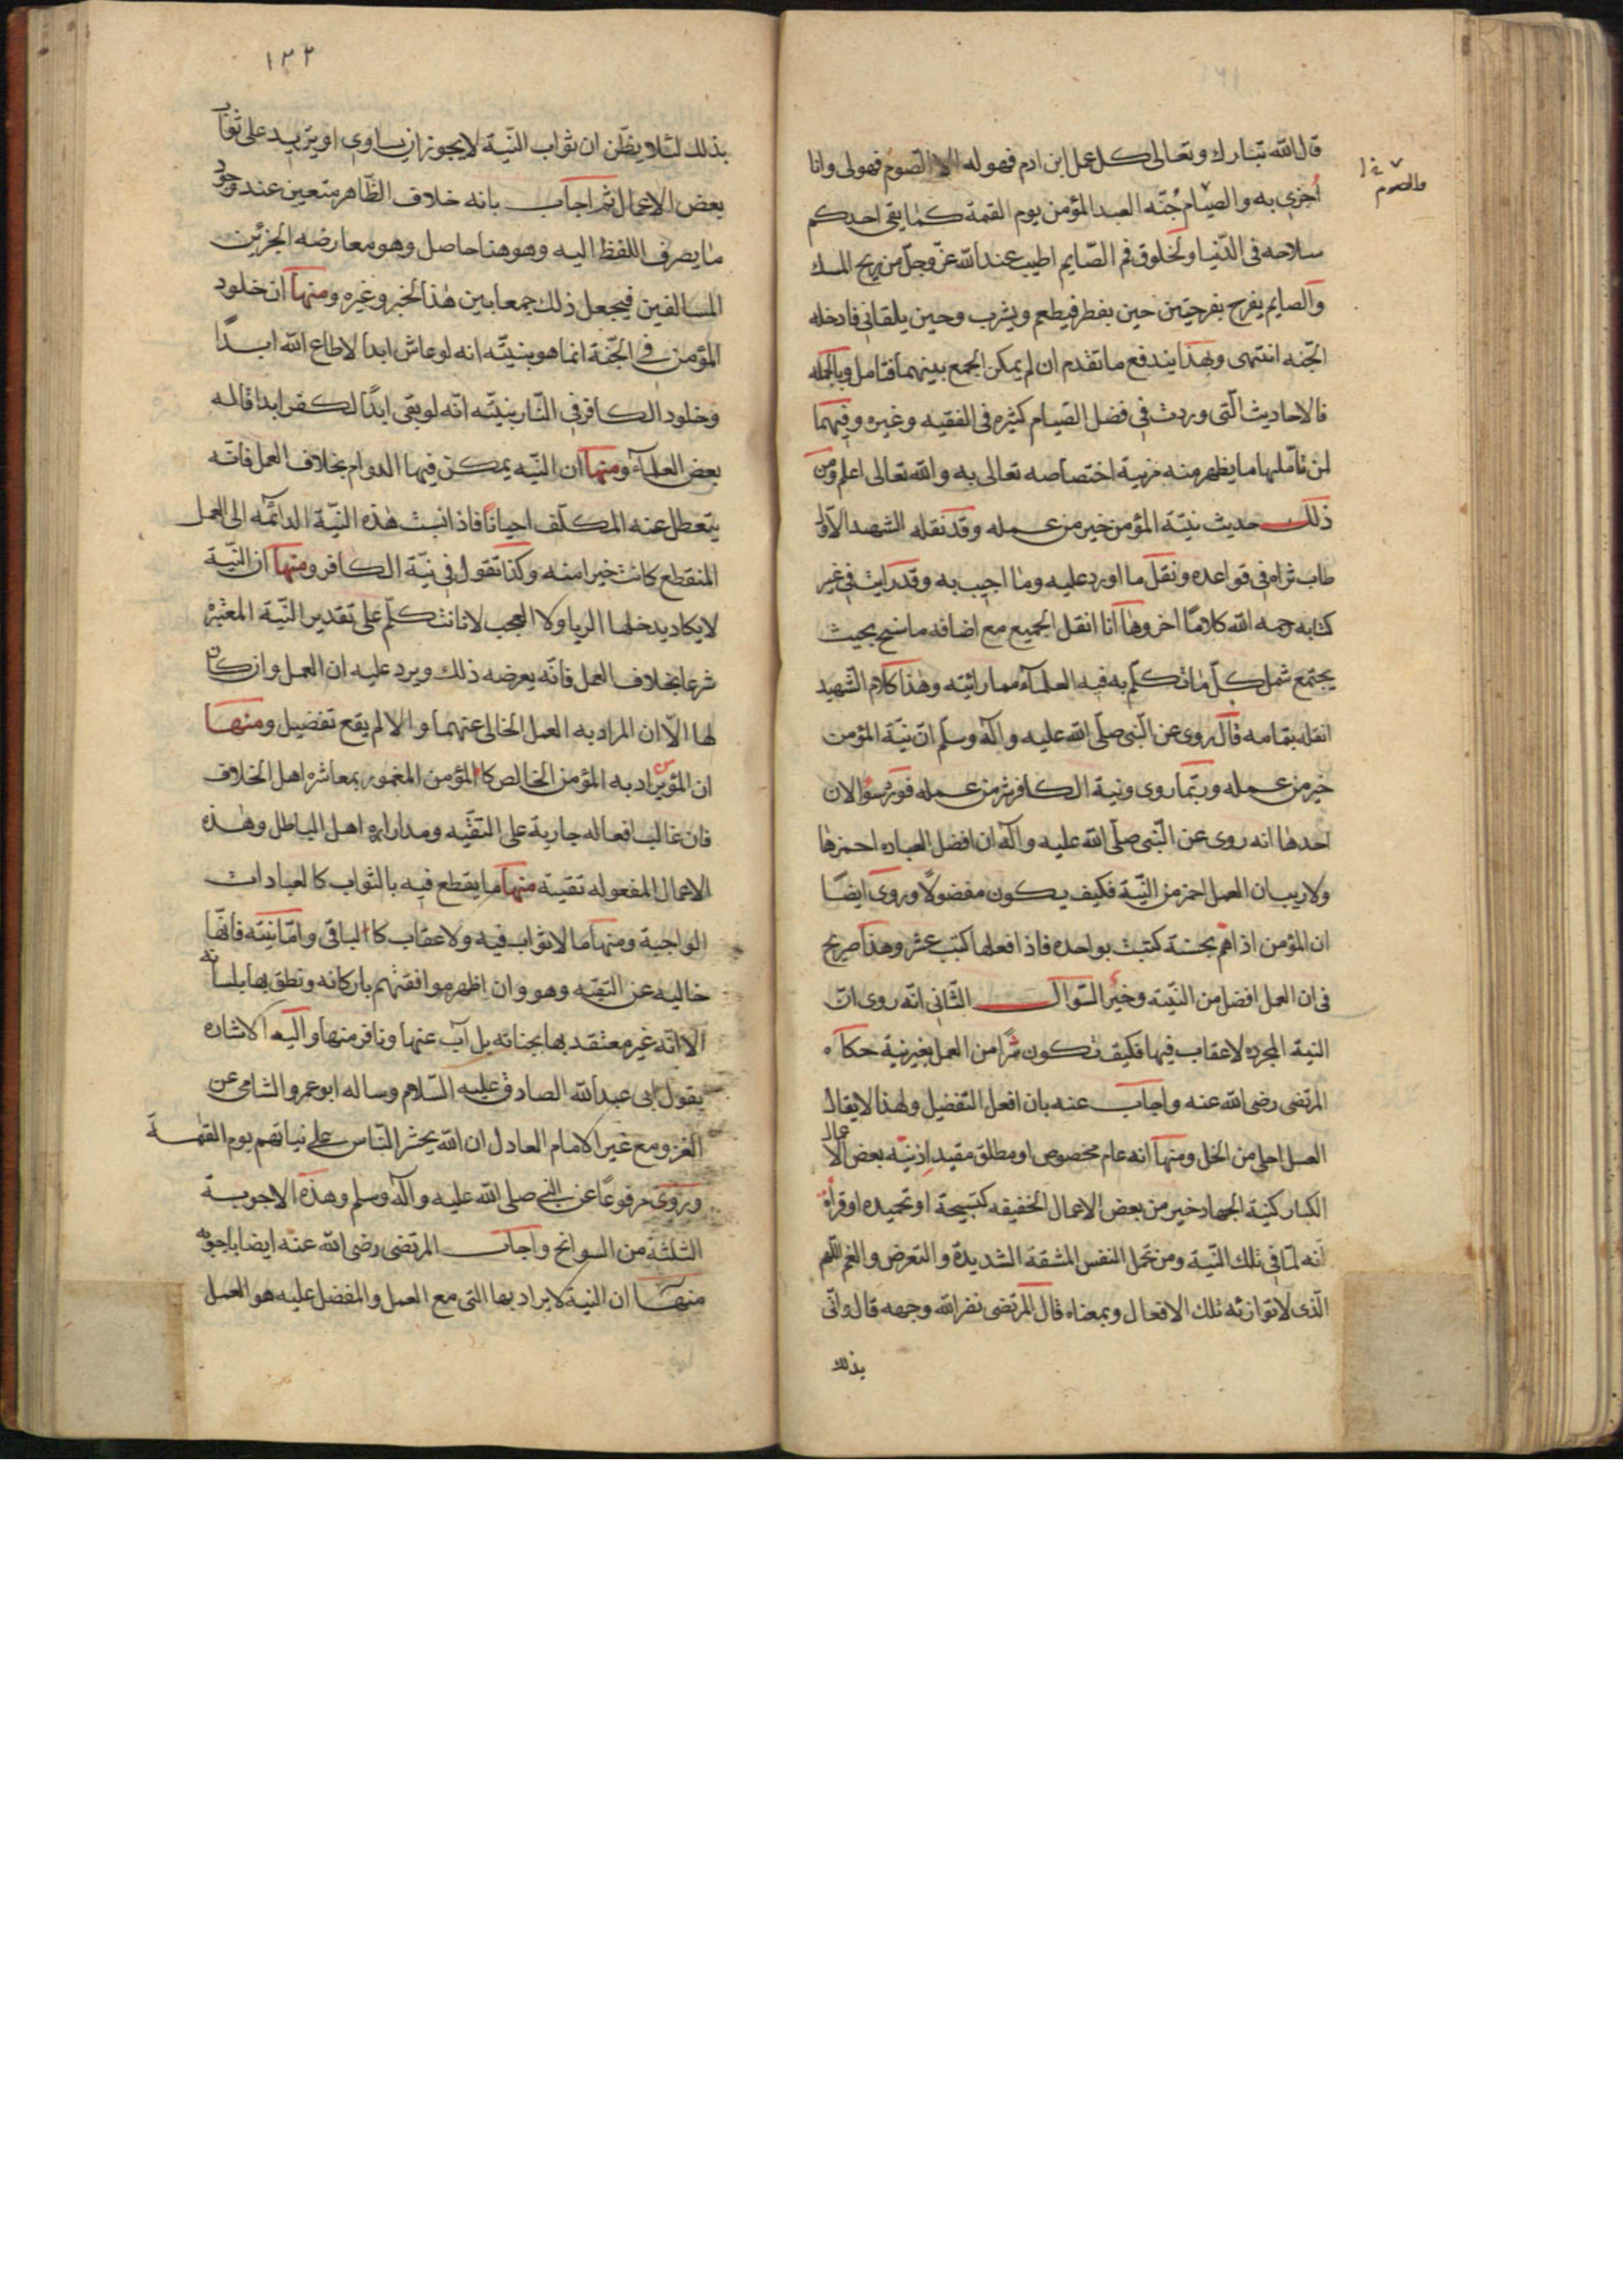 قال الله تبارك وتعالى كل عمل ابن ادم فهو له الا الصوم فهو لى وانا
والصوم
اجزى به والصيام جنّه العبد المؤمن يوم القيمة كما يقى احدكم
سلاحه فى الدّنيا ولخلوق فم الصّايم اطيب عند الله عزّ وجلّ من ريح المسك
والصايم يفرح بفرحتين حين يفطر فيطعم ويشرب وحين يلقانى فادخله
الجّنه انتهى وبهذا يندفع ما تقدم ان لم يمكن الجمع بينهما فتامل وبالجمله
فالاحاديث الّتى وردت فى فضل الصّيام كثيره فى الفقيه وغيره وفيهما
لمن تاملها ما يظهر منه مزية اختصاصه تعالى به والله تعالى اعلم ومن
ذلك حديث نيّة المؤمن خير من عمله وقد نقله الشهيد الاوّل
طاب ثراه فى قواعده ونقل ما اورد عليه وما اجيب به وقد رايت فى غير
كتابه رحمه الله كلامًا اخر وها انا انقل الجميع مع اضافه ما سنح بحيث
يجتمع شمل كلّ ما تكلّم به فيه العلماء مما رايته وهذا كلام الشّهيد
انقله بتمامه قال روى عن النّبى صلّى الله عليه واله وسلّم انّ نيّة المؤمن
خير من عمله وربّما روى ونية الكافر شر من عمله فورد سؤالان
احدها انه روى عن النّبى صلّى الله عليه واله ان افضل العباده احمزها
ولا ريب ان العمل احمز من النّية فكيف يكون مفضولًا وروى ايضًا
ان المؤمن اذا هم بحسنة كتبت بواحده فاذا فعلها كتب عشر وهذا صريح
فى ان العمل افضل من النّية وخير السّوال الثّانى انّه روى انّ
النية المجرده لا عقاب فيها فكيف تكون شرًّا من العمل بغير نية حكاه
المرتضى رضى الله عنه واجاب عنه بان افعل التفضيل ولهذا لا يقال
العسل احلى من الخل ومنها انه عام مخصوص او مطلق مقيد اذ نيّة بعض الاعمال
الكبار كنية الجهاد خير من بعض الاعمال الخفيفه كتسبيحة او تحميده او قراة
انه لما فى تلك النّية ومن تحمل النفس المشقة الشديدة والتعرض والغم
الّذى لا توازنه تلك الافعال وبمعناه قال المرتضى نضر الله وجهه قال واتى
بذلك
١٣٢
بذلك لئلا يظّن ان ثواب النّية لا يجوز ان يساوى او يزيد على ثواب
بعض الاعمال ثم اجاب بانه خلاف الظّاهر متعين عند وجود
ما يصرف اللفظ اليه وهو هنا حاصل وهو معارضه الخبرين
السالفين فيجعل ذلك جمعا بين هذا الخبر وغيره ومنها ان خلود
المؤمن فى الجّنة انما هو بنيّته انه لو عاش ابدا لاطاع الله ابدًا
وخلود الكافر فى النّار بنيّته انّه لو بقى ابدًا لكفر ابدا قاله
بعض العلماء ومنها ان النيّه يمكن فيها الدوام بخلاف العمل فانّه
يتعطل عنه المكلّف احيانًا فاذا نسبت هذه النيّة الدائمه الى العمل
المنقطع كانت خيرا منه وكذا نقول فى نيّة الكافر ومنها ان النّية
لا يكاد يدخلها الريا ولا العجب لانا نتكلّم على تقدير النّية المعتبره
شرعا بخلاف العمل فانّه يعرضه ذلك ويرد عليه ان العمل وان كان
لها الّا ان المراد به العمل الخالى عنهما والا لم يقع تفضيل ومنها
ان المؤمن يراد به المؤمن الخالص كالمؤمن المغمور بمعاشره اهل الخلاف
فان غالب افعاله جارية على التقيّه ومداراه اهل الباطل وهذه
الاعمال المفعوله تقية منها ما يقطع فيه بالثواب كالعبادات
الواجبة ومنها ما لا ثواب فيه ولا عقاب كالباقى وامّا نيّته فانّها
خاليه عن التقيّه وهو وان اظهر موافقتهم باركانه ونطق بها بلسانه
الا انّه غير معتقد بها بجنانه بل آب عنها ونافر منها واليه الاشاره
بقول ابى عبد الله الصادق عليه السّلام وساله ابو عمرو الشامى عن
الغزو مع غير الامام العادل ان الله يحشر النّاس على نياتهم يوم القيمة
وروى مرفوعًا عن النبى صلى الله عليه واله وسلم وهذه الاجوبة
الثلثة من السوانح واجاب المرتضى رضى الله عنه ايضا باجوبه
منها ان النية لا يراد بها التى مع العمل والمفضل عليه هو العمل